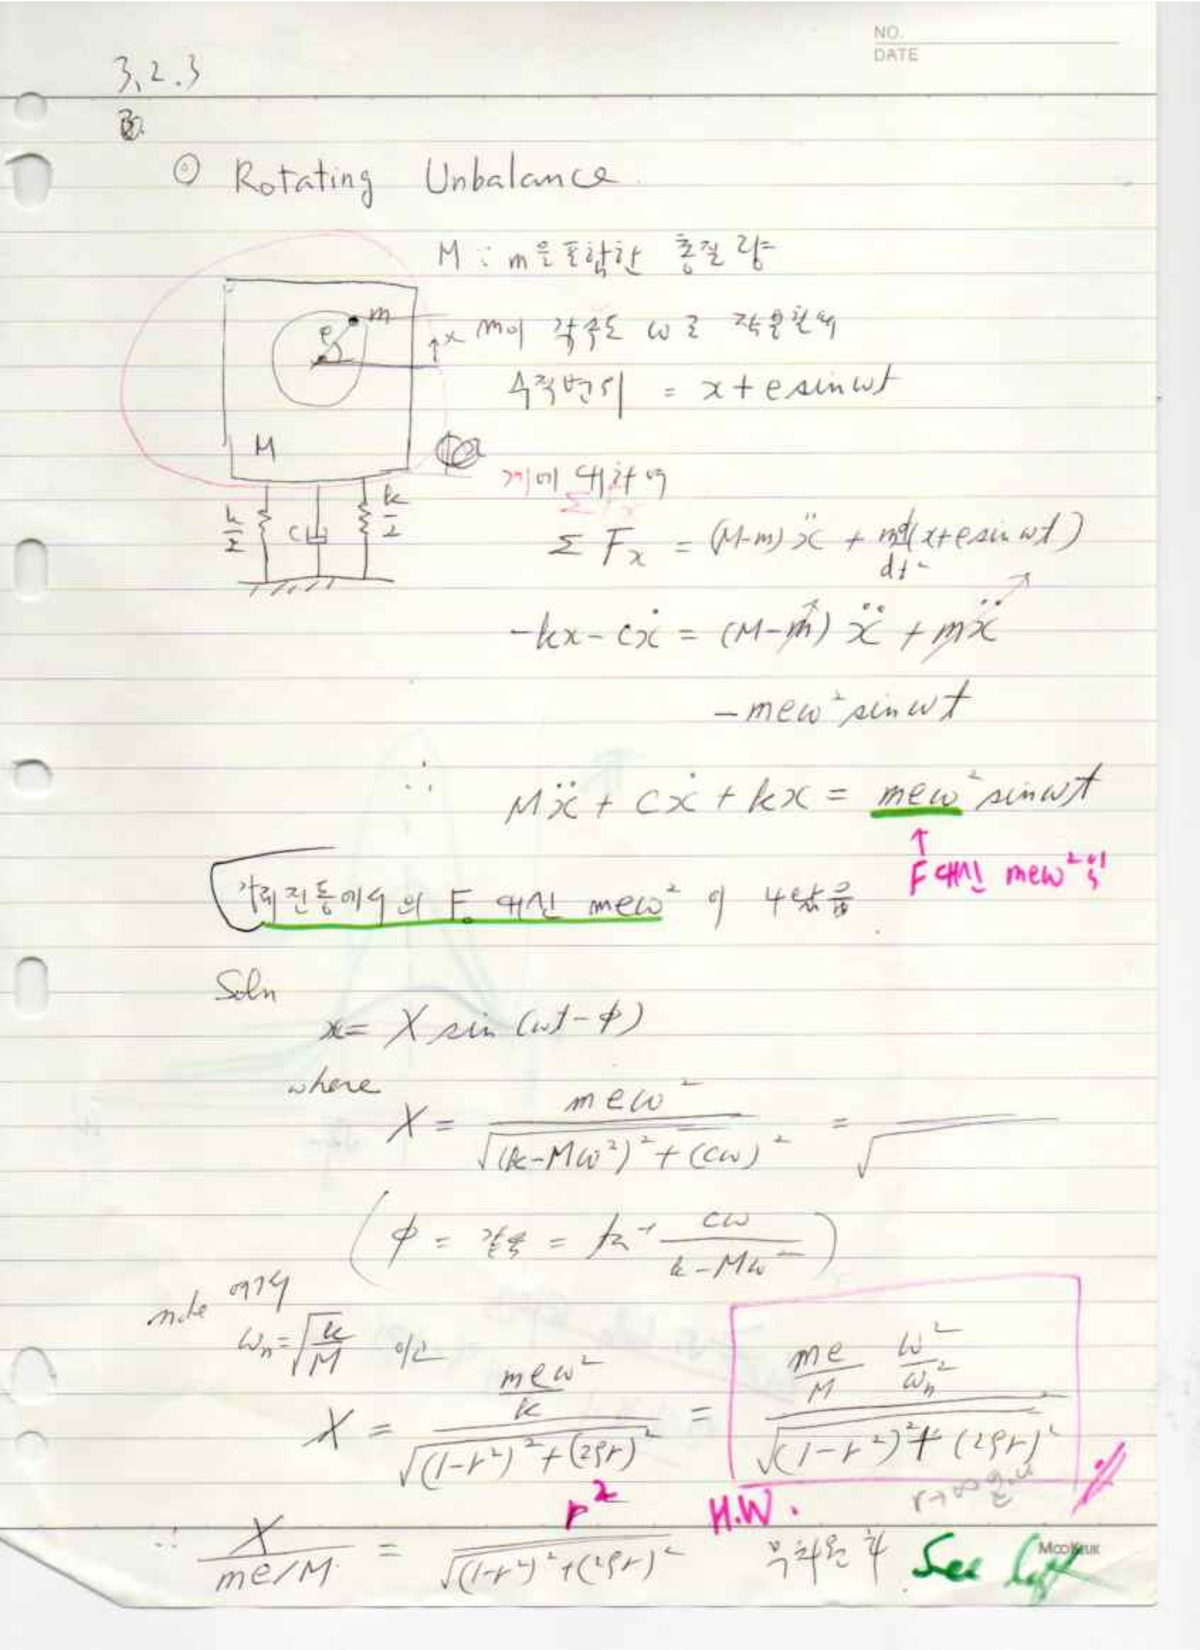 NO.
DATE
3.2.3
⊙ Rotating Unbalance.
M : m을 포함한 총질량
m
e
x
M
k/2
c
k/2
m이 각속도 ω로 작용할때
수직변위 = x + e sin ωt
계에 대하여
Σ F_x
Σ F_x = (M-m) ẍ + m d²/dt² (x + e sin ωt)
-kx - cẋ = (M-m) ẍ + mẍ
- meω² sin ωt
∴ Mẍ + cẋ + kx = meω² sin ωt
↑
F 대신 meω²이
강제진동에서의 F₀ 대신 meω² 이
Soln
x = X sin (ωt - φ)
where
X = meω² / √((k-Mω²)² + (cω)²) = / √
( φ = 같음 = tan⁻¹ cω / (k-Mω²) )
note 여기서
ω_n = √(k/M) 이고
X = (meω²/k) / √((1-r²)² + (2ζr)²) = (me/M · ω²/ω_n²) / √((1-r²)² + (2ζr)²)
r→∞
∴ X / (me/M) = r² / √((1-r²)² + (2ζr)²) H.W. 무차원화 See left
MOOKEUK